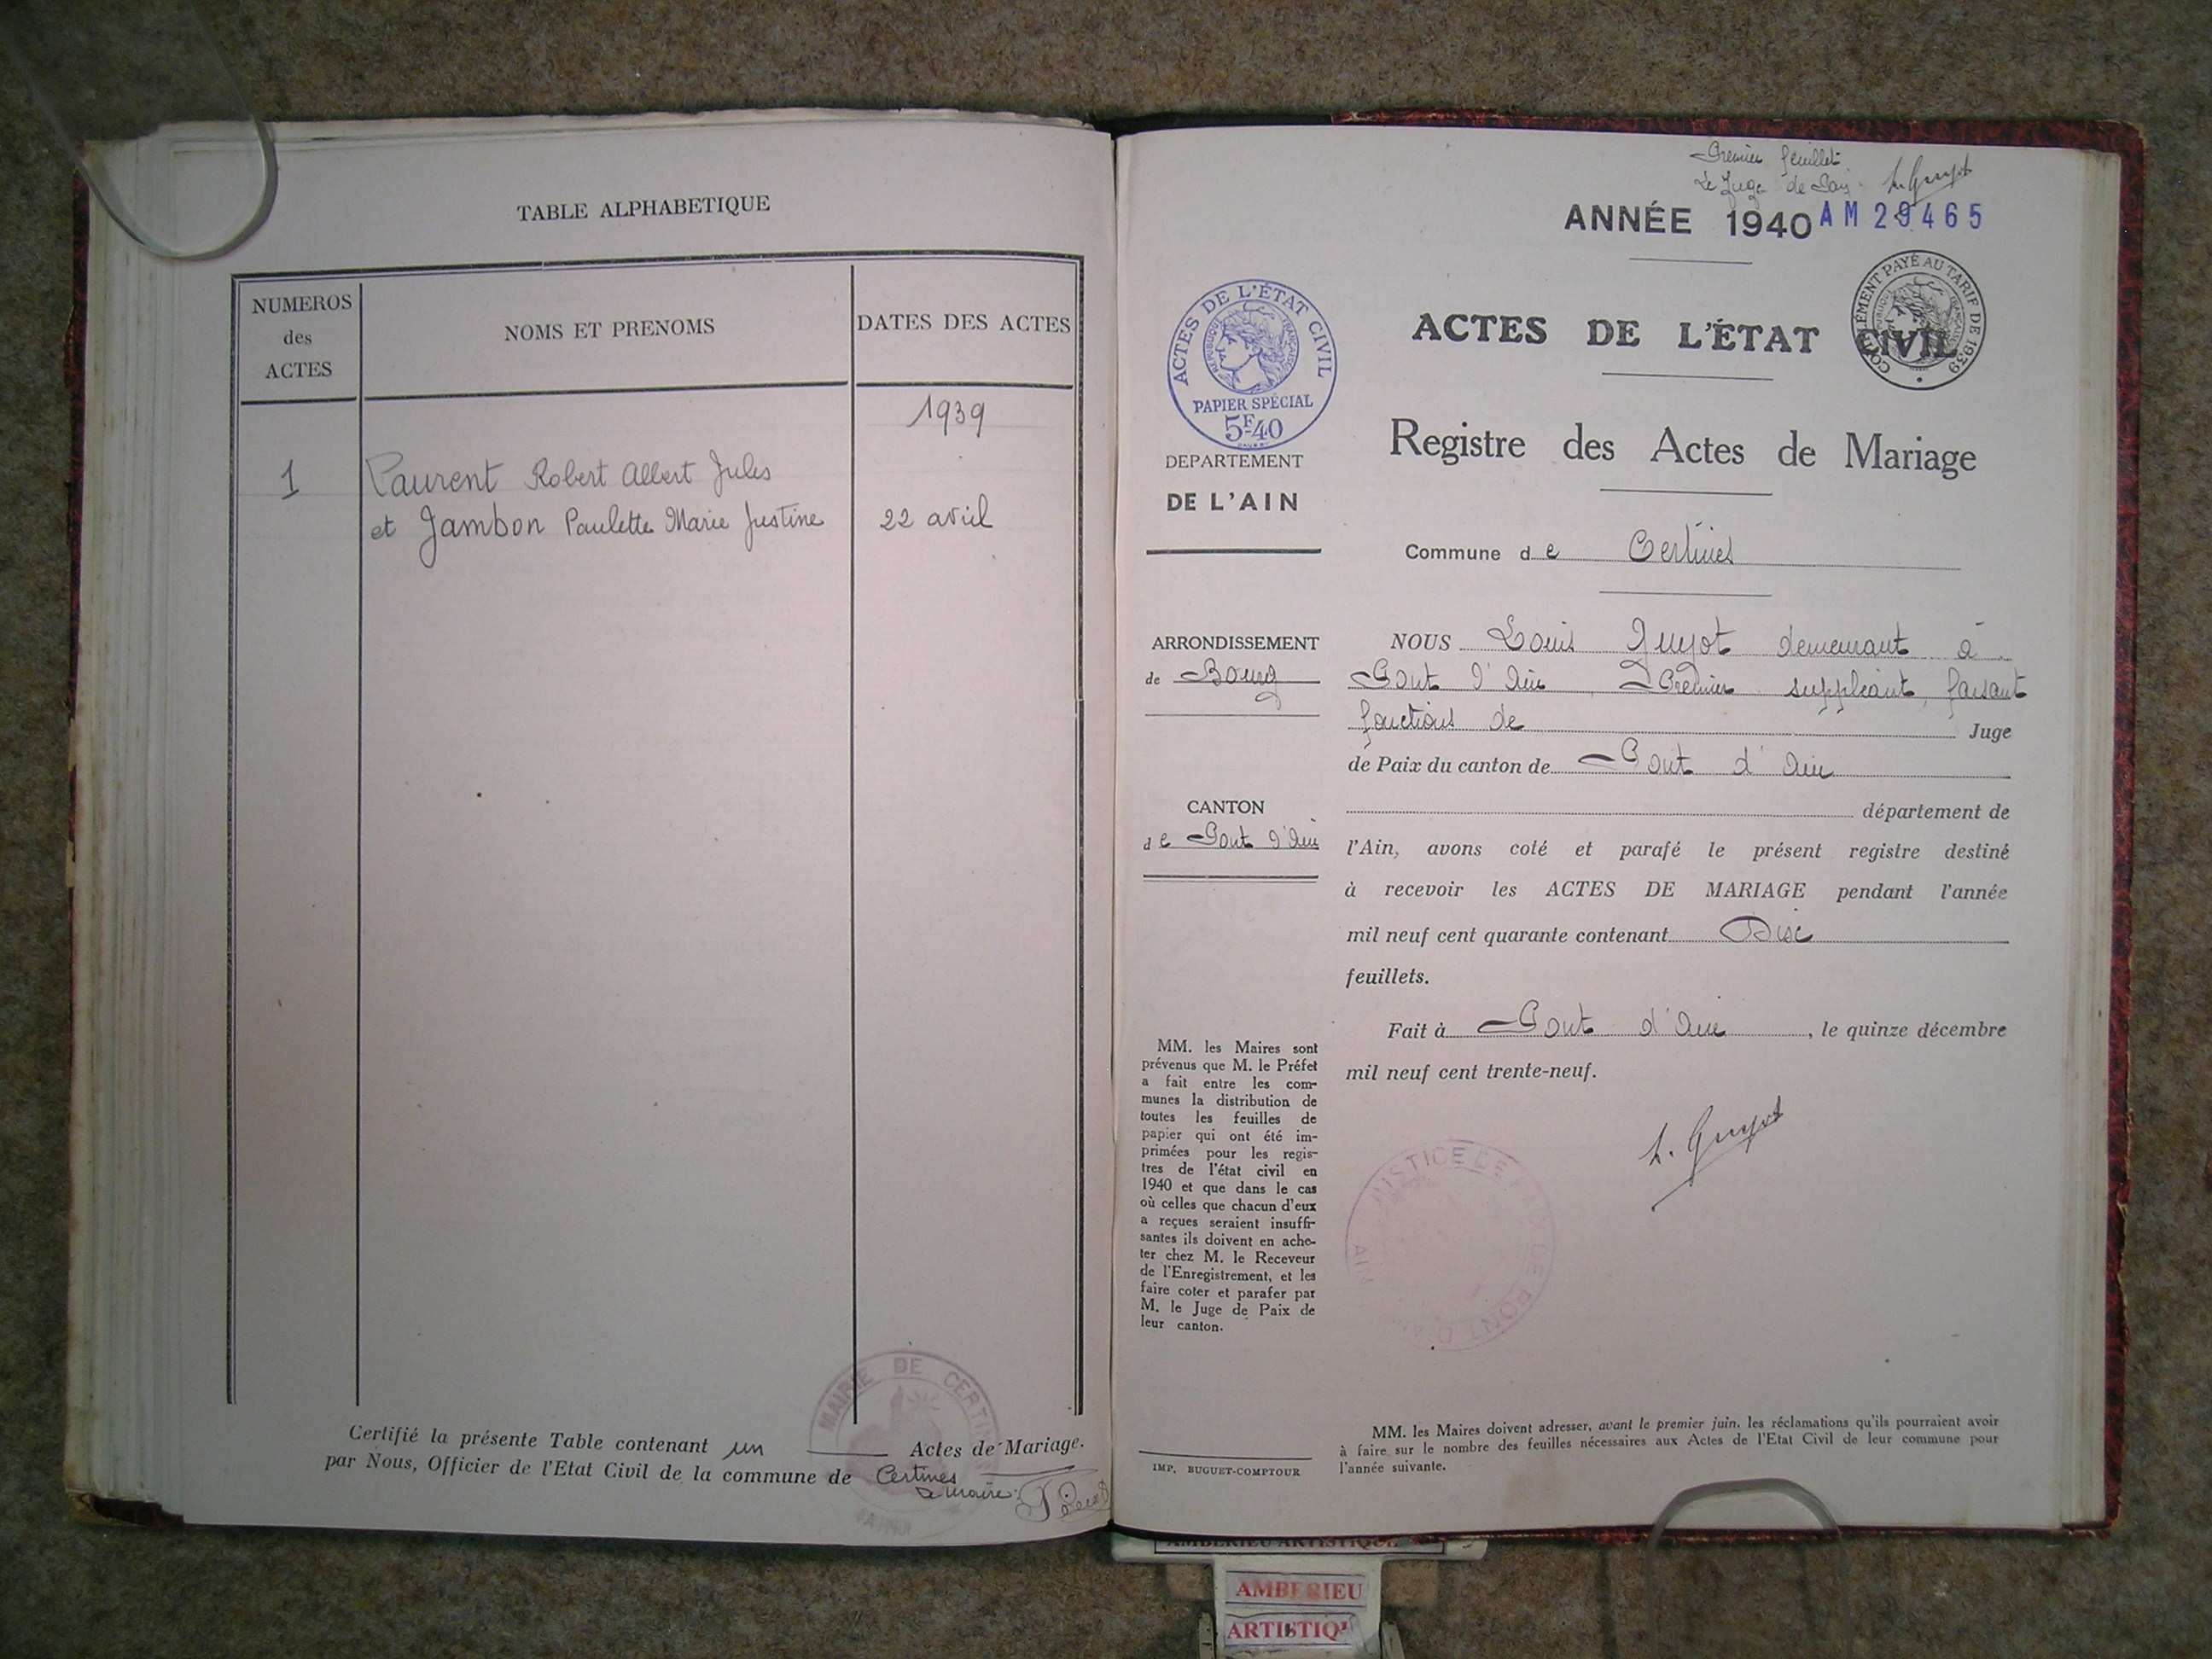 TABLE ALPHABETIQUE
NUMEROS
des
ACTES
NOMS ET PRENOMS
DATES DES ACTES
1939
1
Laurent Robert Albert Jules
et Jambon Paulette Marie Justine
22 avril
MAIRIE DE CERTINES
Certifié la présente Table contenant un Actes de Mariage.
par Nous, Officier de l'Etat Civil de la commune de Certines
Le maire:
Premier feuillet
Le Juge de Paix L. Guyot
ANNÉE 1940 AM 29465
ACTES DE L'ÉTAT CIVIL
RÉPUBLIQUE FRANÇAISE
PAPIER SPÉCIAL
5F40
COMPLÉMENT PAYÉ AU TARIF DE 1939
ACTES DE L'ÉTAT CIVIL
Registre des Actes de Mariage
DEPARTEMENT
DE L'AIN
Commune de Certines
ARRONDISSEMENT
de Bourg
CANTON
de Pont d'Ain
NOUS Louis Guyot demeurant à
Pont d'Ain, Premier suppléant, faisant
fonctions de Juge
de Paix du canton de Pont d'Ain
département de
l'Ain, avons coté et parafé le présent registre destiné
à recevoir les ACTES DE MARIAGE pendant l'année
mil neuf cent quarante contenant Dix
feuillets.
Fait à Pont d'Ain, le quinze décembre
mil neuf cent trente-neuf.
L. Guyot
JUSTICE DE PAIX DE PONT D'AIN
AIN
MM. les Maires sont
prévenus que M. le Préfet
a fait entre les com-
munes la distribution de
toutes les feuilles de
papier qui ont été im-
primées pour les regis-
tres de l'état civil en
1940 et que dans le cas
où celles que chacun d'eux
a reçues seraient insuffi-
santes ils doivent en ache-
ter chez M. le Receveur
de l'Enregistrement, et les
faire coter et parafer par
M. le Juge de Paix de
leur canton.
IMP. BUGUET-COMPTOUR
MM. les Maires doivent adresser, avant le premier juin, les réclamations qu'ils pourraient avoir
à faire sur le nombre des feuilles nécessaires aux Actes de l'Etat Civil de leur commune pour
l'année suivante.
AMBERIEU ARTISTIQUE
AMBERIEU
ARTISTIQ